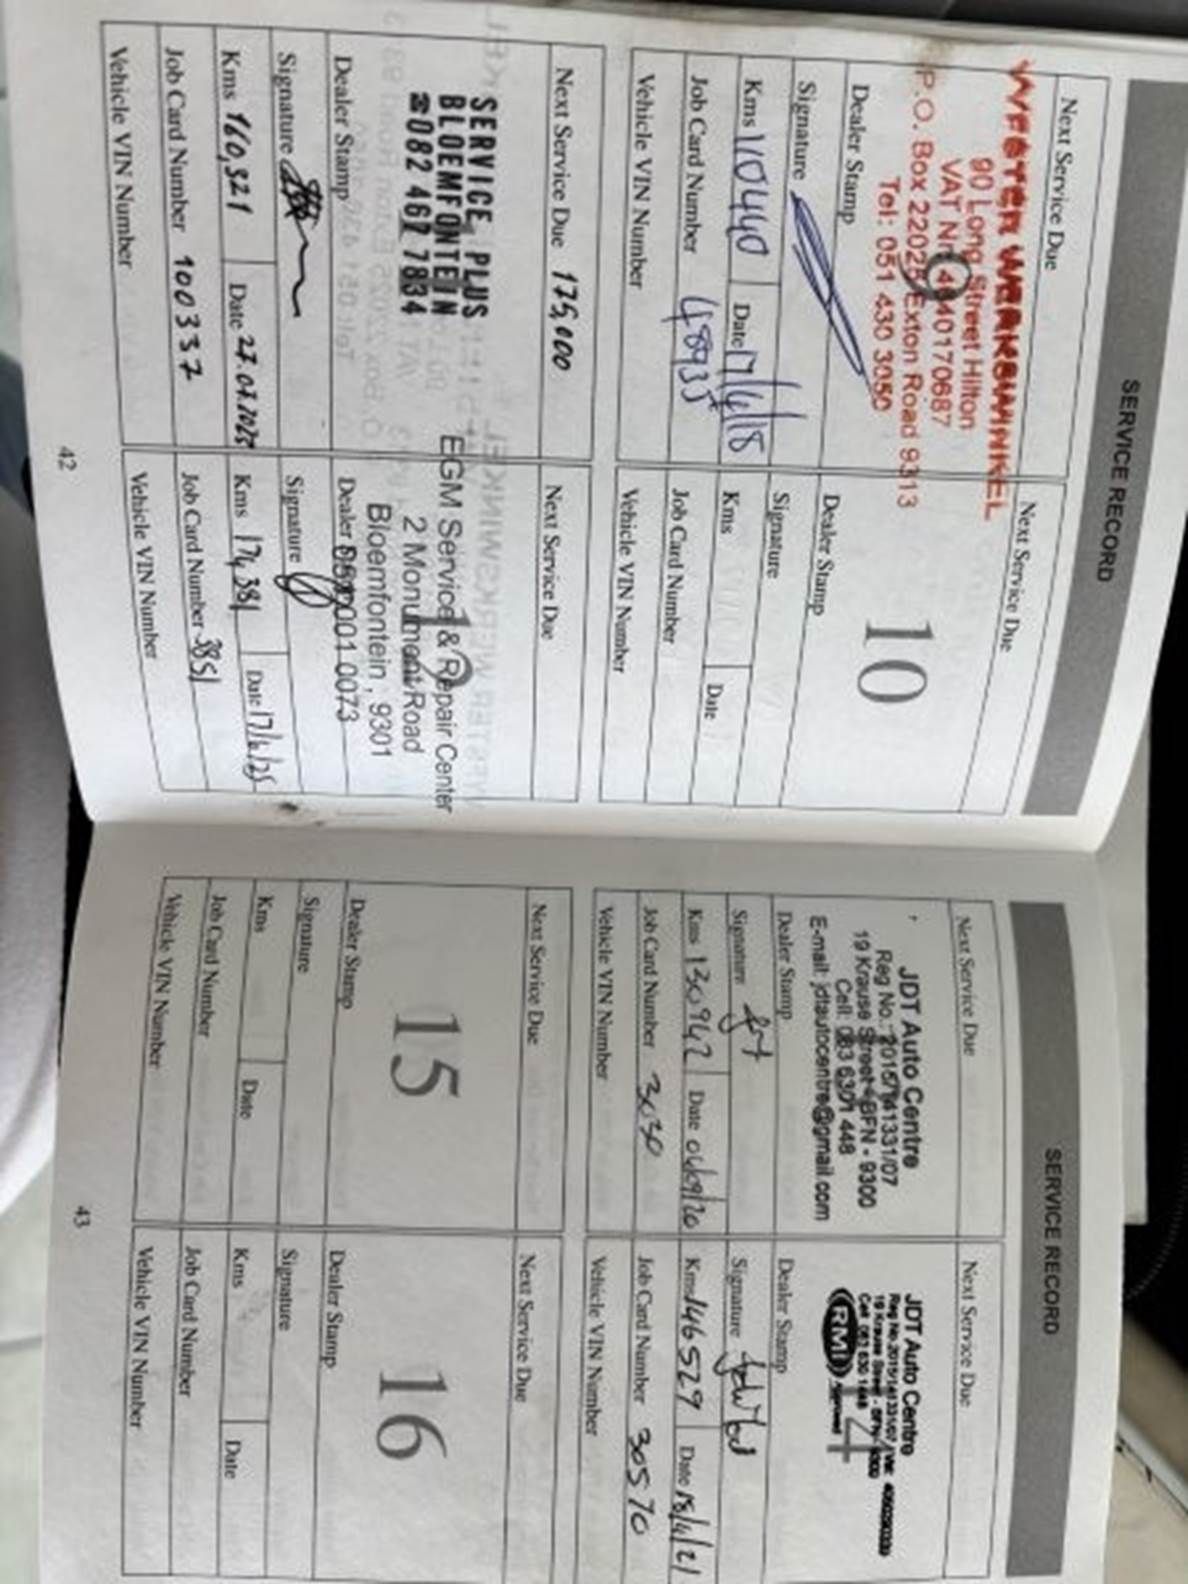 SERVICE RECORD
Next Service Due
WESTER WERKSWINKEL
90 Long Street Hilton
VAT Nr. 4640170687
P.O. Box 22025 Exton Road 9313
Tel: 051 430 3050
9
Dealer Stamp
Signature
Kms 110440 Date 17/4/18
Job Card Number 48935
Vehicle VIN Number
Next Service Due
10
Dealer Stamp
Signature
Kms Date
Job Card Number
Vehicle VIN Number
Next Service Due 175,000
SERVICE PLUS
BLOEMFONTEIN
☎082 462 7834
Dealer Stamp
Signature
Kms 160,321 Date 27.07.2023
Job Card Number 100337
Vehicle VIN Number
Next Service Due
12
EGM Service & Repair Center
2 Monument Road
Bloemfontein, 9301
Dealer 001 0073
Signature
Kms 174,381 Date 17/6/25
Job Card Number 3851
Vehicle VIN Number
42
SERVICE RECORD
Next Service Due
JDT Auto Centre
Reg No.: 2015/141331/07
19 Krause Street - BFN - 9300
Cell: 083 6301 448
E-mail: jdtautocentre@gmail.com
Dealer Stamp
Signature
Kms 130942 Date 04/09/20
Job Card Number 3030
Vehicle VIN Number
Next Service Due
JDT Auto Centre
Reg No.2015/141331/07
19 Krause Street - BFN - 9300
Cell: 083 630 1448
RMI
14
Dealer Stamp
Signature
Kms 146529 Date 15/4/21
Job Card Number 30570
Vehicle VIN Number
Next Service Due
15
Dealer Stamp
Signature
Kms Date
Job Card Number
Vehicle VIN Number
Next Service Due
16
Dealer Stamp
Signature
Kms Date
Job Card Number
Vehicle VIN Number
43